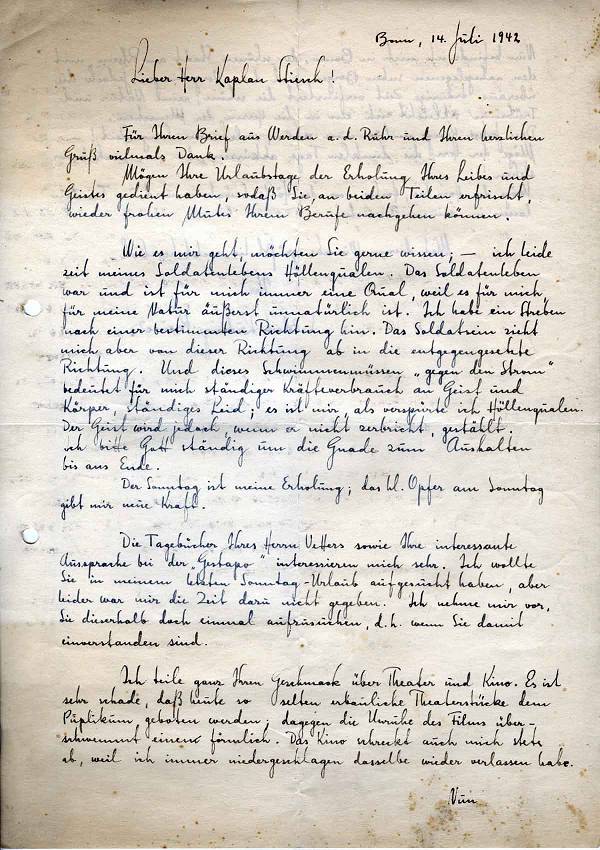 Bonn, 14. Juli 1942
Lieber Herr Kaplan !
Für Ihren Brief aus Werden a. d. Ruhr und Ihren herzlichen
Gruß vielmals Dank.
Mögen Ihre Urlaubstage der Erholung Ihres Leibes und
Geistes gedient haben, sodaß Sie, an beiden Teilen erfrischt,
wieder frohen Mutes Ihrem Berufe nachgehen können.
Wie es mir geht, möchten Sie gerne wissen; — ich leide
zeit meines Soldatenlebens Höllenqualen. Das Soldatenleben
war und ist für mich immer eine Qual, weil es für mich,
für meine Natur äußerst unnatürlich ist. Ich habe ein Streben
nach einer bestimmten Richtung hin. Das Soldatsein zieht
mich aber von dieser Richtung ab in die entgegengesetzte
Richtung. Und dieses Schwimmenmüssen „gegen den Strom"
bedeutet für mich ständiger Kräfteverbrauch an Geist und
Körper, ständiges Leid; es ist mir, als verspürte ich Höllenqualen.
Der Geist wird jedoch, wenn er nicht zerbricht, gestählt.
Ich bitte Gott ständig um die Gnade zum Aushalten
bis ans Ende.
Der Sonntag ist meine Erholung; das hl. Opfer am Sonntag
gibt mir neue Kraft.
Die Tagebücher Ihres Herrn Vetters sowie Ihre interessante
Aussprache bei der „Gestapo" interessieren mich sehr. Ich wollte
Sie in meinem letzten Sonntag-Urlaub aufgesucht haben, aber
leider war mir die Zeit dazu nicht gegeben. Ich nehme mir vor,
Sie dieserhalb doch einmal aufzusuchen, d.h. wenn Sie damit
einverstanden sind.
Ich teile ganz Ihren Geschmack über Theater und Kino. Es ist
sehr schade, daß heute so selten erbauliche Theaterstücke dem
Püplikum geboten werden; dagegen die Unruhe des Films über-
schwemmt einen förmlich. Das Kino schreckt auch mich stets
ab, weil ich immer niedergeschlagen dasselbe wieder verlassen habe.
Nun